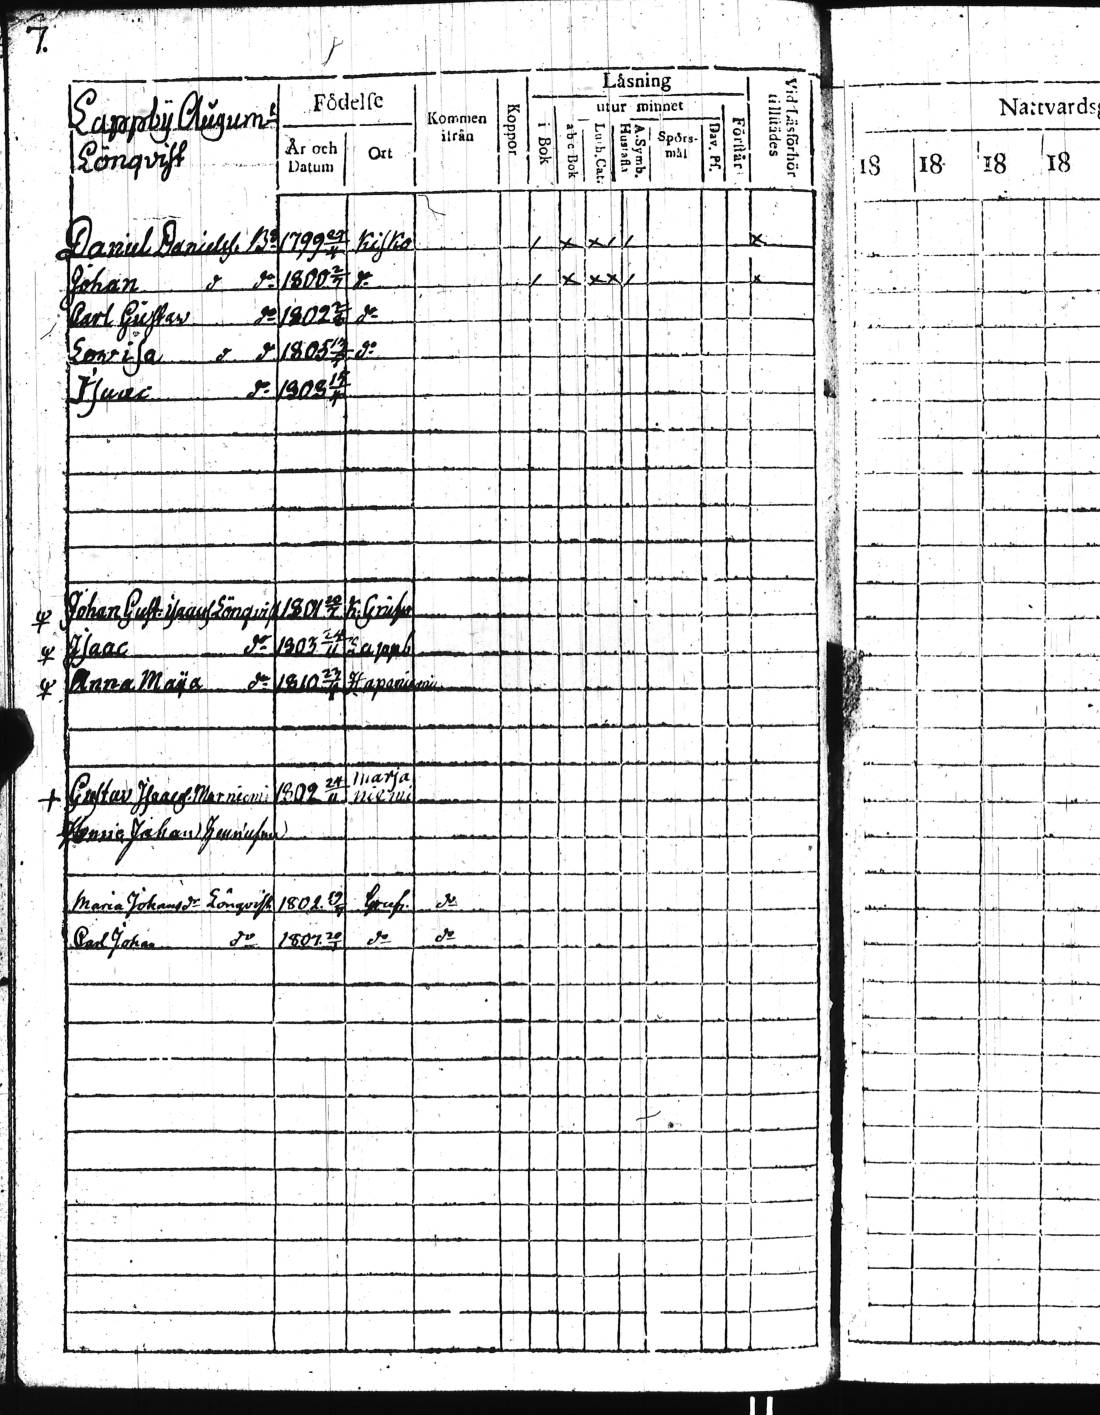 7.
Lappby Augumt
Lönqvist
Födelse
År och Datum
Ort
Kommen ifrån
Koppor
Läsning
utur minnet
i Bok
abc-Bok
Luth. Cat.
A. Symb. Hustafla
Spörsmål
Dav. Ps.
Förstår
Vid Läsförhör tillstädes
Nattvards
18 18 18 18
Daniel Daniels. Bd 1799 Kisko / x x / / x
Johan d do 1800 do / x x x / x
Carl Gustav do 1802 do
Lovisa d d 1805 do
Isaac do 1808
ψ Johan Gust. Isaacs Lönqvist 1801 K. Grufv
ψ Isaac do 1803 Lappb
ψ Anna Maija do 1810 Haponiemi
+ Gustav Isaacs. Marniemi 1802 24/11 Marjaniemi
Johan
Maria Johansdr Lönqvist 1802. Gruf. do
Carl Johan do 1807. 20 do do